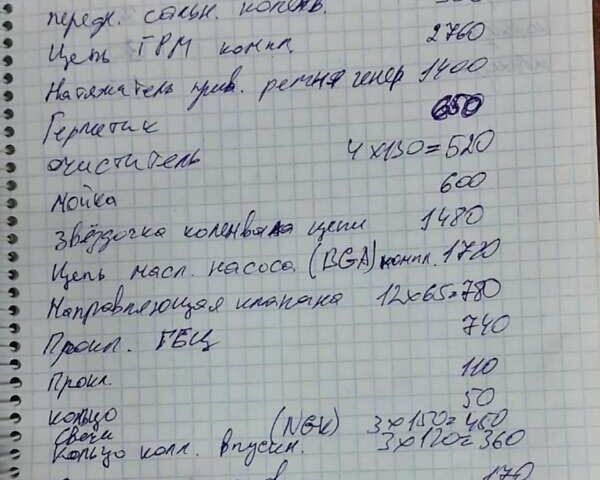 передн. сальн. коленв.
Цепь ГРМ компл. 2760
Натяжитель прив. ремня генер 1400
Герметик 650
очиститель 4х130=520
мойка 600
звёздочка коленвала цепи 1480
Цепь масл. насоса (BGA) компл. 1720
Направляющая клапана 12х65=780
Прокл. ГБЦ 740
Прокл. 110
кольцо 50
свечи (NGK) 3х150=450
кольцо колл. впускн. 3х120=360
170